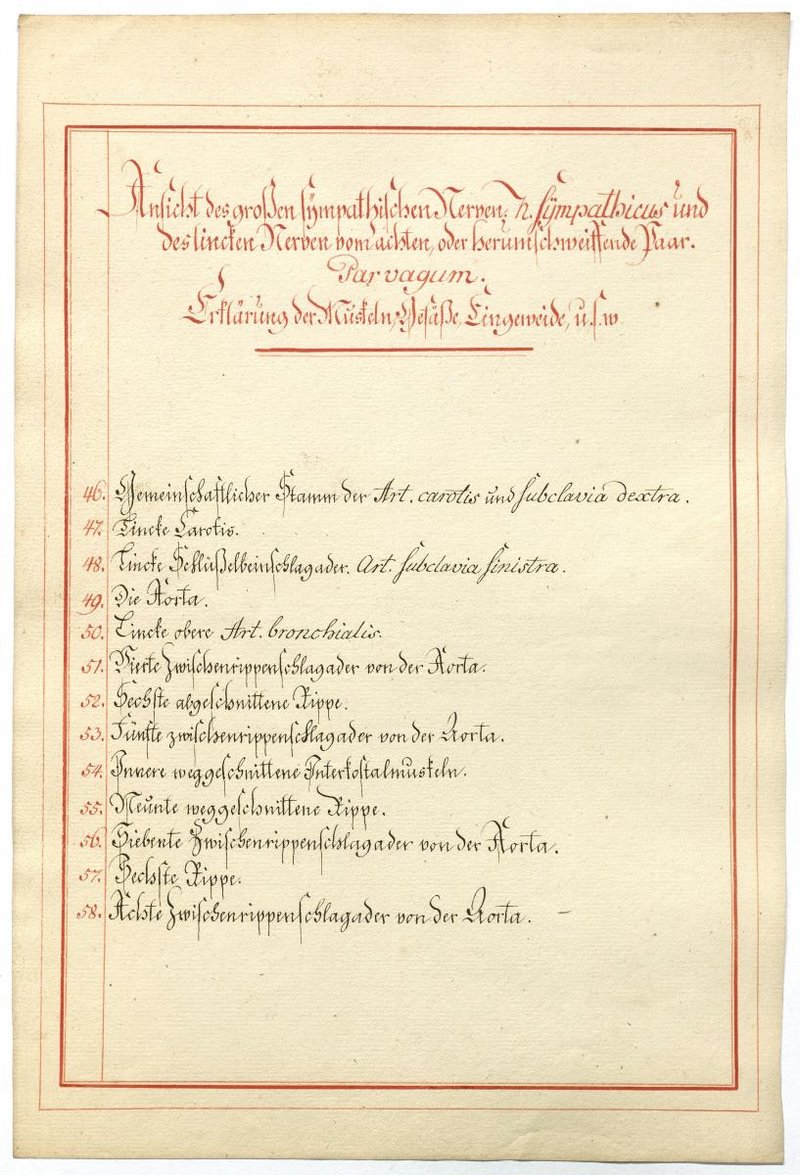 Ansicht des großen sÿmpathischen Nerven. N. Sÿmpathicus und
des lincken Nerven vom achten, oder herumschweiffende Paar.
Par vagum.
Erklärung der Muskeln, Gefäße, Eingeweide, u.s.w
46. Gemeinschaftlicher Stamm der Art. carotis und subclavia dextra.
47. Lincke Carotis.
48. Lincke Schlüßelbeinschlagader. Art. subclavia sinistra.
49. Die Aorta.
50. Lincke obere Art. bronchialis.
51. Vierte Zwischenrippenschlagader von der Aorta.
52. Sechste abgeschnittene Rippe.
53. Fünfte zwischenrippenschlagader von der Aorta.
54. Innere weggeschnittene Interkostalmuskeln.
55. Neunte weggeschnittene Rippe.
56. Siebente Zwischenrippenschlagader von der Aorta.
57. Sechste Rippe.
58. Achte Zwischenrippenschlagader von der Aorta. –